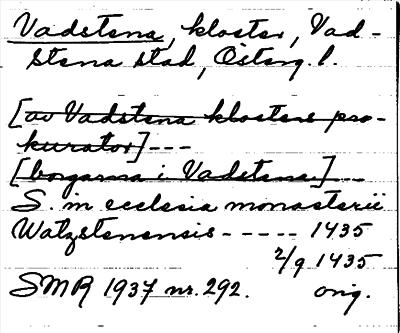 Vadstena, kloster, Vad-
stena stad, Österg. l.
[av Vadstena klosters pro-
kurator] ---
[borgarna i Vadstena] ---
S. in ecclesia monasterii
Watzstenensis ----- 1435
2/9 1435
SMR 1937 nr. 292. orig.